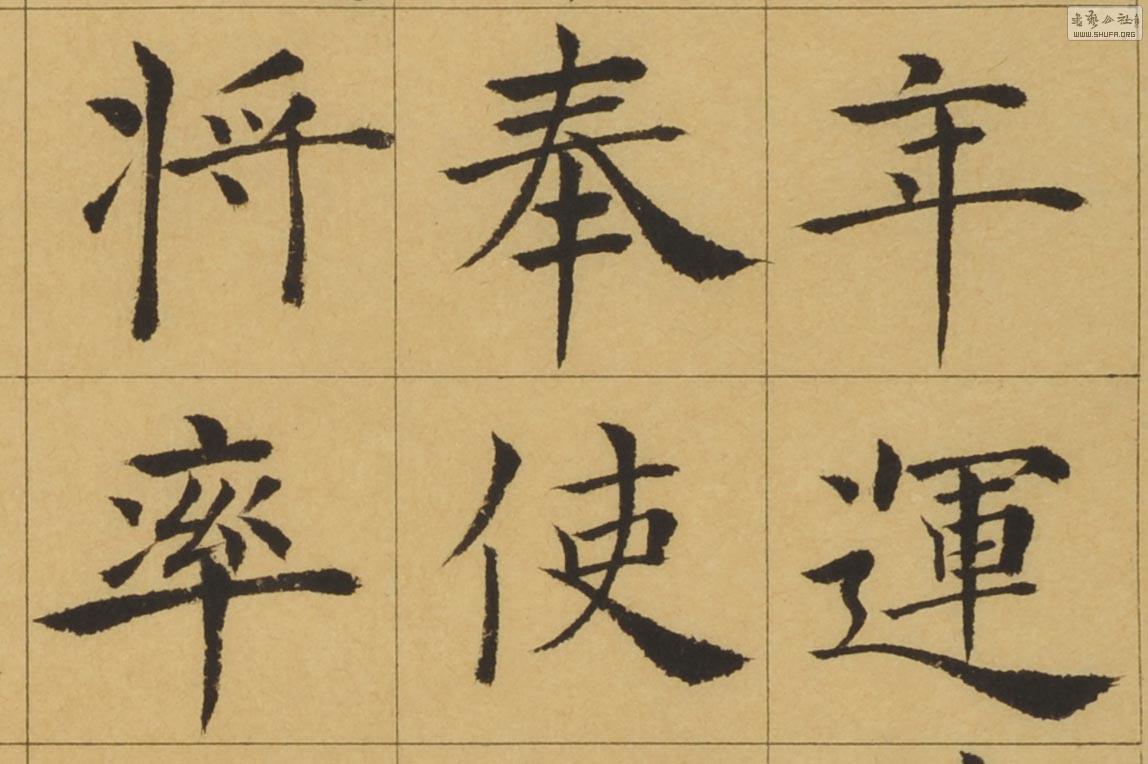 年運
奉使
将率
書藝公社
WWW.SHUFA.ORG